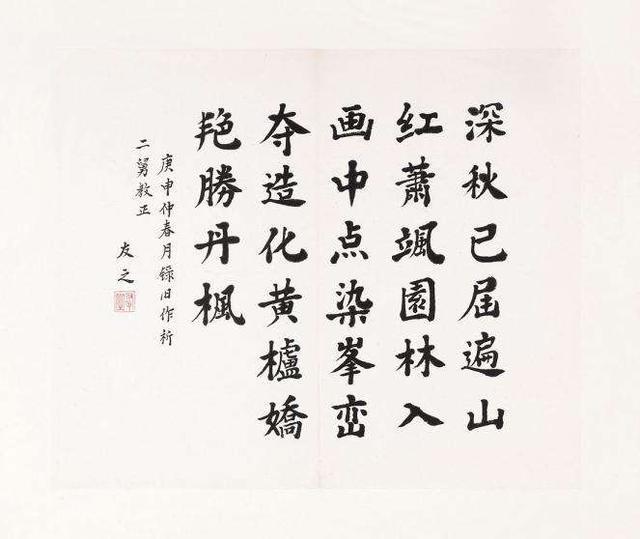 深秋已届遍山
红蕭颯園林入
画中点染峯峦
夺造化黄櫨嬌
艳勝丹楓
庚申仲春月錄旧作祈
二舅教正
友之